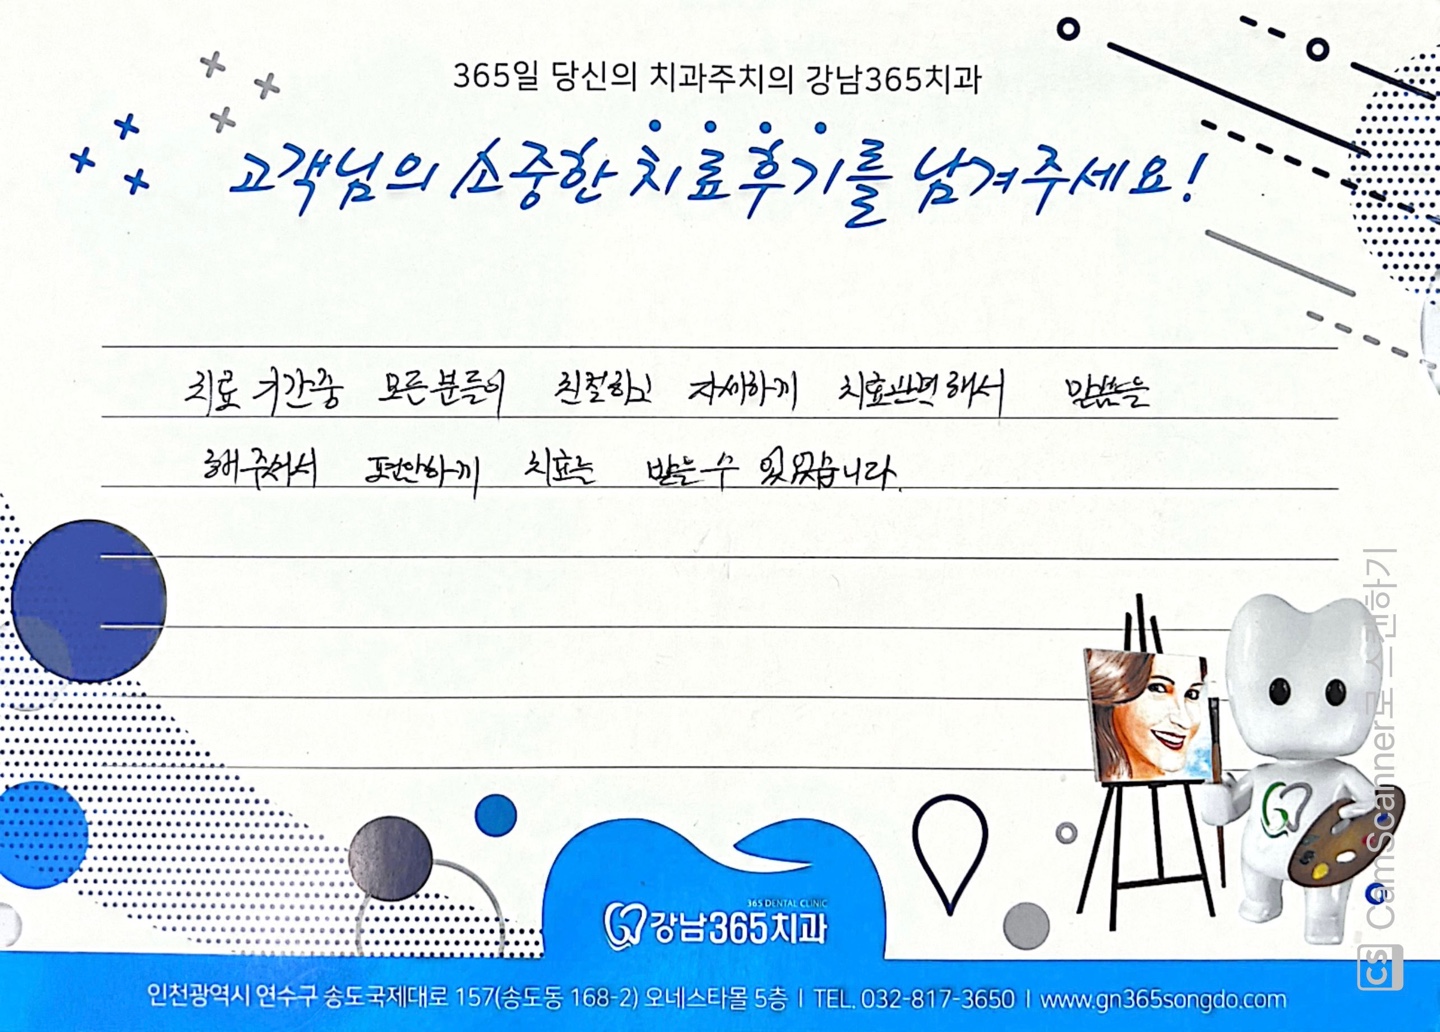 365일 당신의 치과주치의 강남365치과
고객님의 소중한 치료후기를 남겨주세요!
치료 기간중 모든분들이 친절하고 자세하게 치료관련해서 말씀을
해주셔서 편안하게 치료를 받을수 있었습니다.
365 DENTAL CLINIC
강남365치과
인천광역시 연수구 송도국제대로 157(송도동 168-2) 오네스타몰 5층 | TEL. 032-817-3650 | www.gn365songdo.com
CS CamScanner로 스캔하기